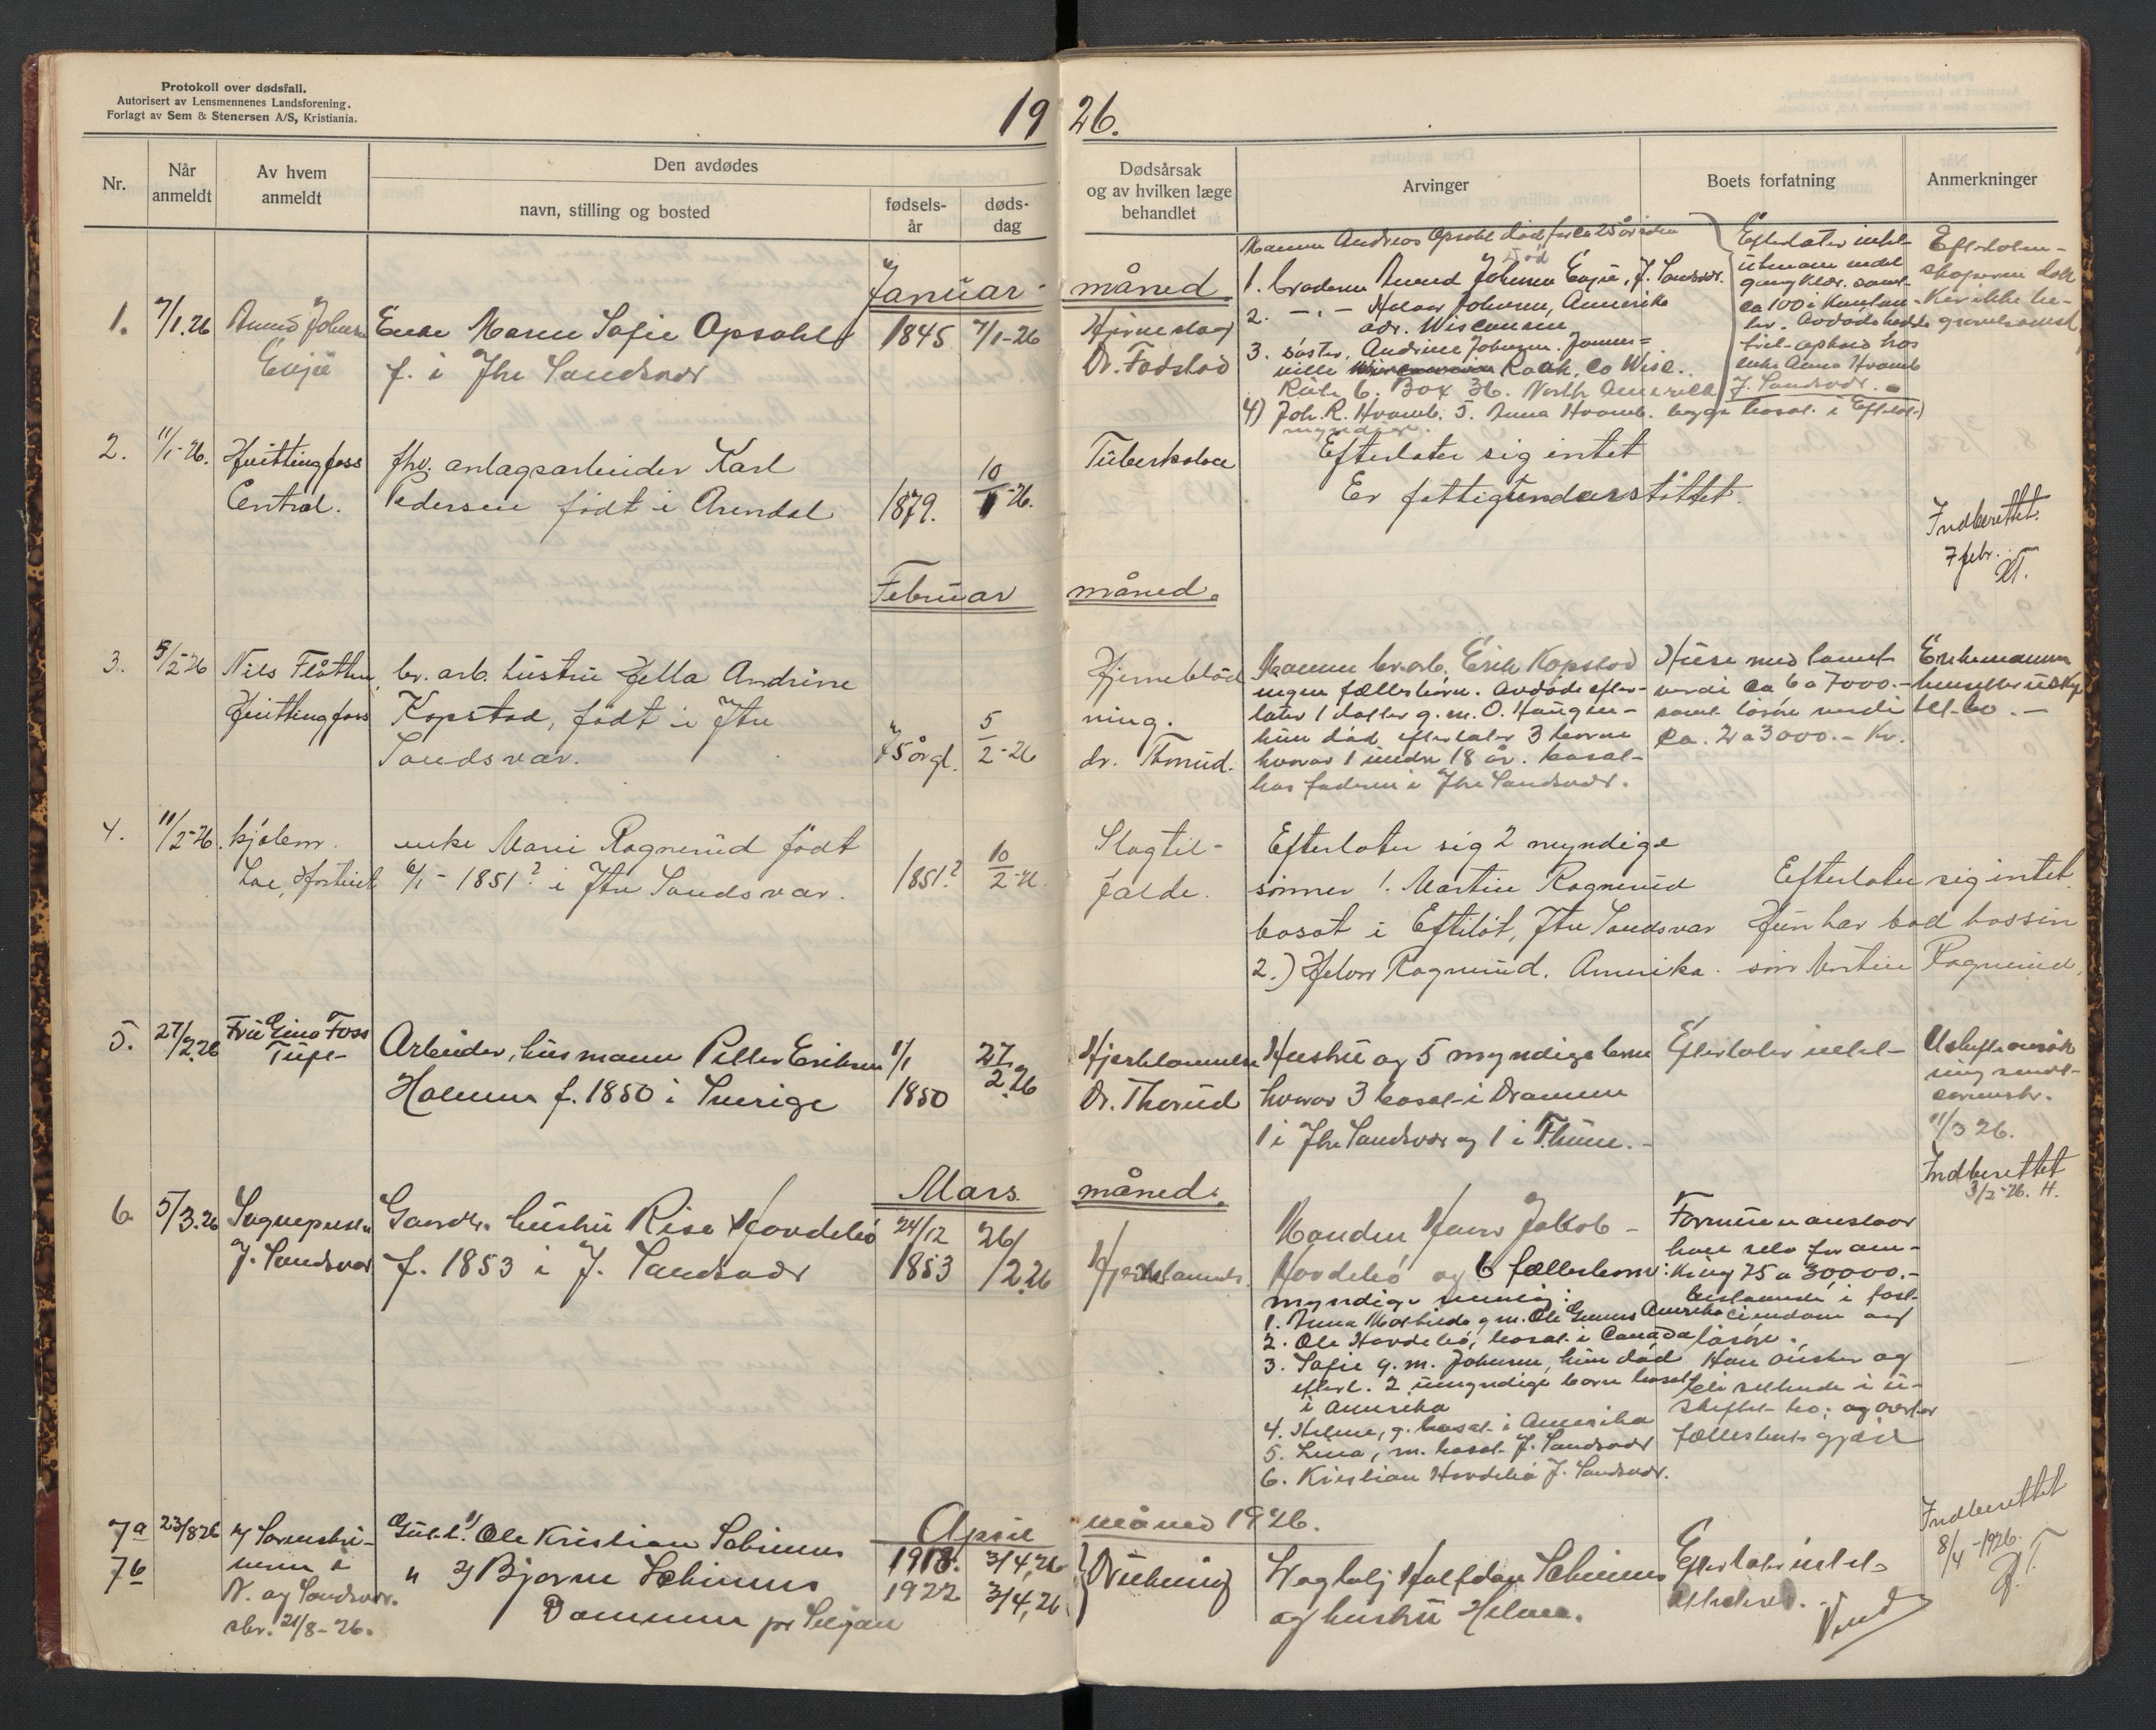 Protokoll over dødsfall.
Autorisert av Lensmennenes Landsforening.
Forlagt av Sem & Stenersen A/S, Kristiania.
1926.
Nr.
Når anmeldt
Av hvem anmeldt
Den avdødes
navn, stilling og bosted
fødselsår
dødsdag
Dødsårsak og av hvilken læge behandlet
Arvinger
Boets forfatning
Anmerkninger
Januar måned
1. 7/1.26
Enke Maren Sofie Opsahl
f. i Ytre Sandsvær
1845 7/1-26
Dr. Fodstad
Manden Andreas Opsahl død for ca 25 år siden
1. broderen Amund Johnsen Evju, Y. Sandsvær.
2. -"- Johnsen, Amerika
adr. Wisconsin
3. søster, Andrine Johnsen. Janes=
ville Rock. Co Wisc.
Rute 6. Box 36. North Amerika
4) Joh. R. Hvamb. 5. Anna Hvamb. begge bosat i Efteløt
myndige.
Efterlater intet
ca 100 i kontan-
ter. Avdøde hadde
frit ophold hos
enke Anna Hvamb
Y. Sandsvær.
2. 11/1-26.
Hvittingfoss
Central.
fhv. anlagsarbeider Karl
Pedersen født i Arendal
1879. 10/1-26.
Tuberkolose
Efterlater sig intet
Er fattigunderstøttet.
Indberettet.
7 febr.
Februar måned.
3. 5/2-26
Nils Flåtten,
Hvittingfoss
br. arb. hustru Hella Andrine
Kopstad, født i Ytre
Sandsvær.
75 år gl.
5/2-26
Hjerneblød
ning.
dr. Thorud.
Manden br.arb. Erik Kopstad
ingen fælles børn. Avdøde efter-
later 1 datter g. m. O. Haugen-
hun død efterlater 3 børn
hvorav 1 under 18 år. bosat-
hos faderen i Ytre Sandsvær.
Huse med tomt
verdi ca 6 a 7000.-
samt løsøre verdi
ca. 2 a 3000.- Kr.
Enkemannen
4. 11/2-26.
enke Marie Ragnerud født
6/1 - 1851? i Ytre Sandsvær.
1851? 10/2-26.
Slagtil-
fælde.
Efterlater sig 2 myndige
sønner 1. Martin Ragnerud
bosat i Efteløt, Ytre Sandsvær
2.) Helvor Ragnerud. Amerika.
Efterlater sig intet.
Hun har bod hos sin
søn Martin Ragnerud.
5. 27/2.26
Fru Gina Foss
Arbeider, husmann Petter Eriksen
Holmen f. 1850 i Sverige
1/1 1850
27/2.26
Hjertelammelse
Dr. Thorud
Hustru og 5 myndige børn
hvorav 3 bosat i Drammen
1 i Ytre Sandsvær og 1 i Thune.-
Efterlater intet-
11/3 26.
Indberettet
3/2-26. H.
Mars måned.
6. 5/3.26
Sognepresten
Y. Sandsvær
Gaardbr. hustru Rise Hovdebø
f. 1853 i Y. Sandsvær
24/12 1853
26/2.26
Hjertelammels.
Manden Hans Jakob
Hovdebø og 6 fællesbørn:
myndige nemlig:
1. Anna Mathilde g m. Ole Amerika
2. Ole Hovdebø, bosat i Canada
3. Sofie g. m. Johnsen, hun død
efterl. 2 umyndige børn bosat
i Amerika
4. Helene, g. bosat i Amerika
5. Lina, m. bosat Y. Sandsvær
6. Kristian Hovdebø Y. Sandsvær.
Formuen anslaar
han selv for om-
kring 25 a 30,000.-
bestaaende i fast-
eiendom og
løsøre.
Han ønsker og
bli sittende i u-
skiftet bo, og overtar
fællesboets gjæld
April måned 1926.
7a 23/8 26
7b
N. og Sandsvær.
skr. 21/8-26.
Gutt. 1) Ole Kristian
" 2) Bjarne
1918. 3/4,26
1922 3/4,26
Drukning
og hustru Helene.
Efterlater intet
Indberettet
8/4-1926.